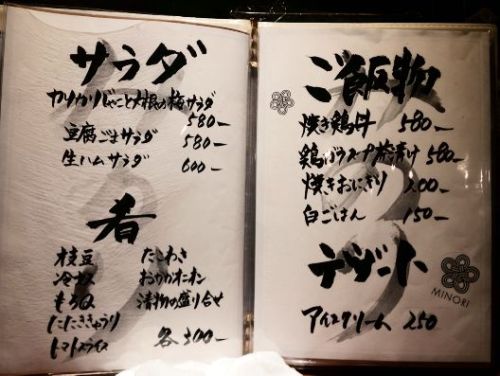 サラダ
カリカリじゃこと大根の梅サラダ
580-
豆腐ごまサラダ 580-
生ハムサラダ 600-
肴
枝豆 たこわさ
冷ヤッコ おかかオニオン
もろQ 漬物の盛り合せ
たたききゅうり
トマトスライス 各300-
ご飯物
焼き鶏丼 580-
鶏ガラスープ茶漬け 580-
焼きおにぎり 200-
白ごはん 150-
デザート
MINORI
アイスクリーム 250